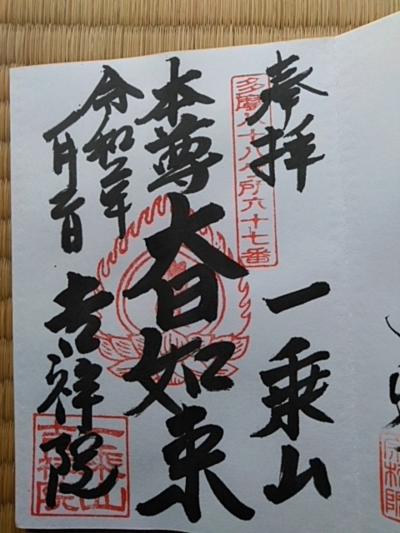 奉拝
多摩八十八ヶ所六十七番
一乗山
本尊
大日如来
令和二年
一月二日
吉祥院
一乗山
吉祥院